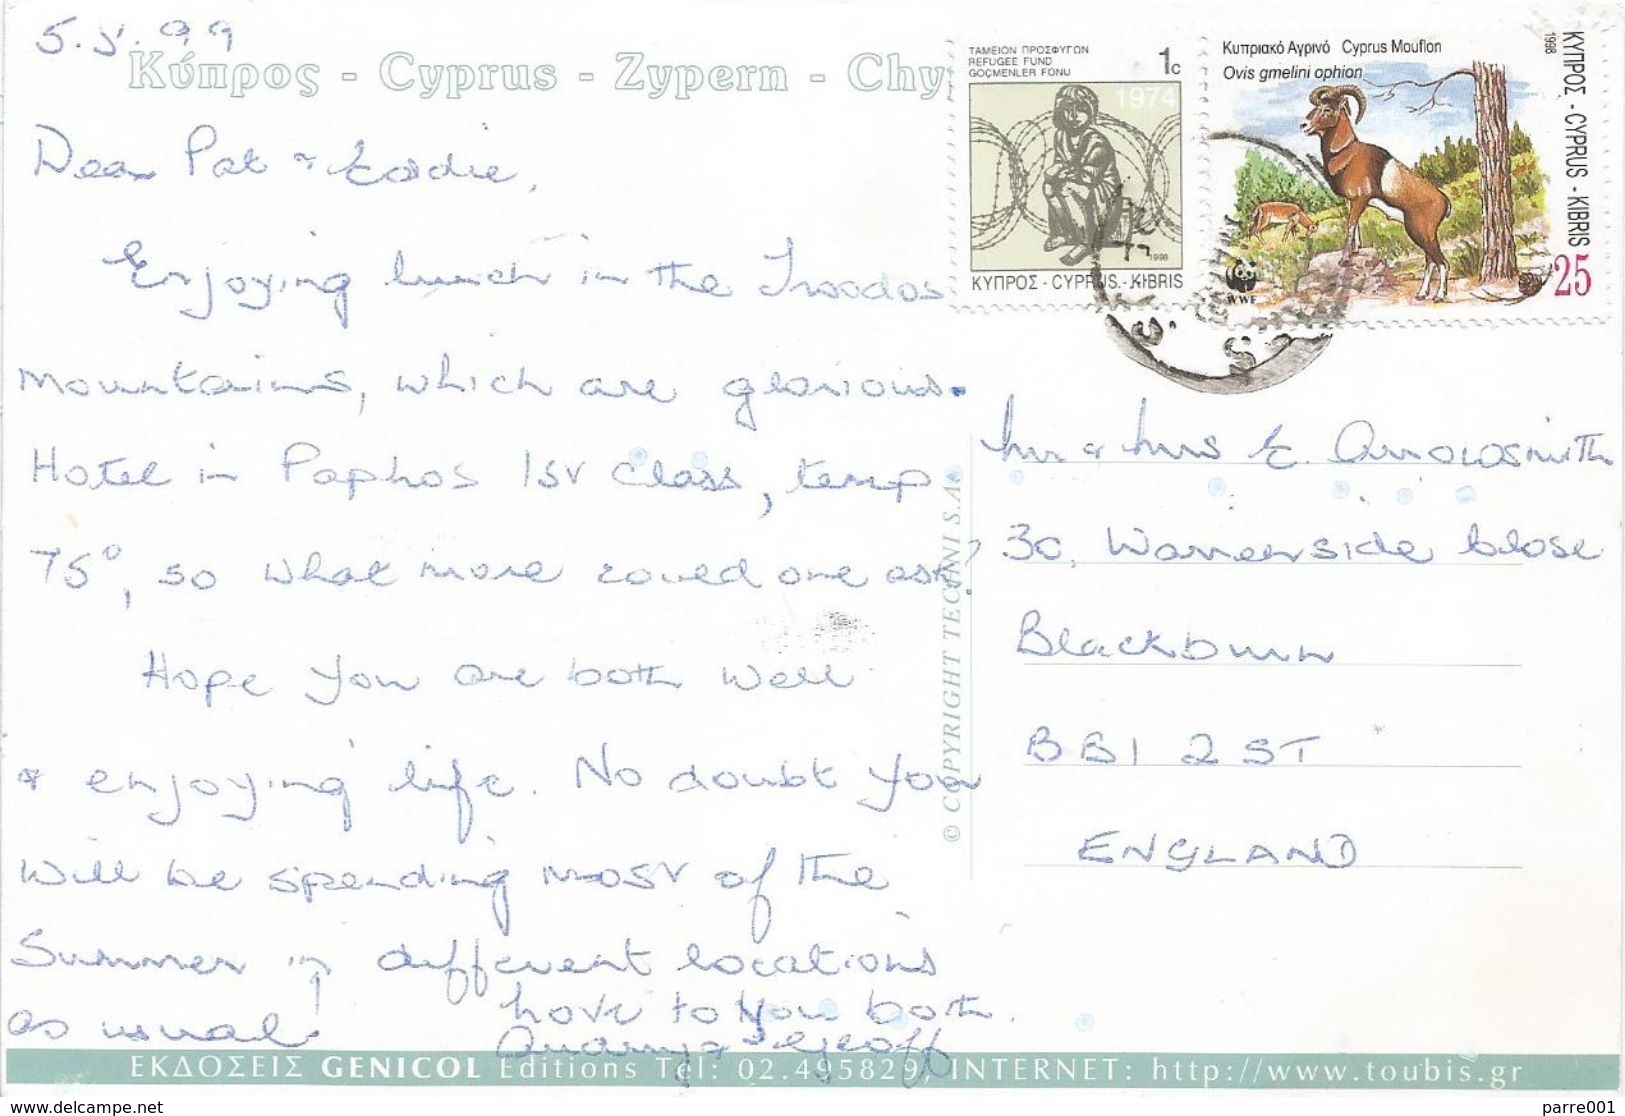 5.5.99
Κύπρος - Cyprus - Zypern - Chy
ΤΑΜΕΙΟΝ ΠΡΟΣΦΥΓΩΝ
REFUGEE FUND
GÖÇMENLER FONU
1c
1974
1998
ΚΥΠΡΟΣ - CYPRUS - KIBRIS
Κυπριακό Αγρινό Cyprus Mouflon
Ovis gmelini ophion
1998
ΚΥΠΡΟΣ - CYPRUS - KIBRIS
WWF
25
Dear Pat & Eddie,
Enjoying lunch in the Troodos
mountains, which are glorious.
Hotel in Paphos 1st class, temp
75°, so what more could one ask?
Hope you are both well
& enjoying life. No doubt you
will be spending most of the
Summer in different locations
as usual!
Love to you both.
& Geoff
Mr & Mrs E. Arrowsmith
30, Warrenside Close
Blackburn
BB1 2ST
ENGLAND
© COPYRIGHT TECHNI S.A.
ΕΚΔΟΣΕΙΣ GENICOL Editions Tel: 02.495829, INTERNET: http://www.toubis.gr
www.delcampe.net
parre001